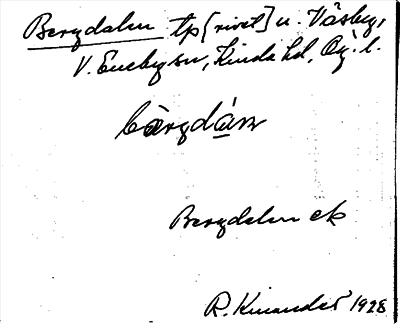 Bergdalen tp [rivet] u. Väsby,
V. Eneby sn, Kinda hd, Ög. l.
bærgdán
Bergdalen ek
R. Kinander 1928